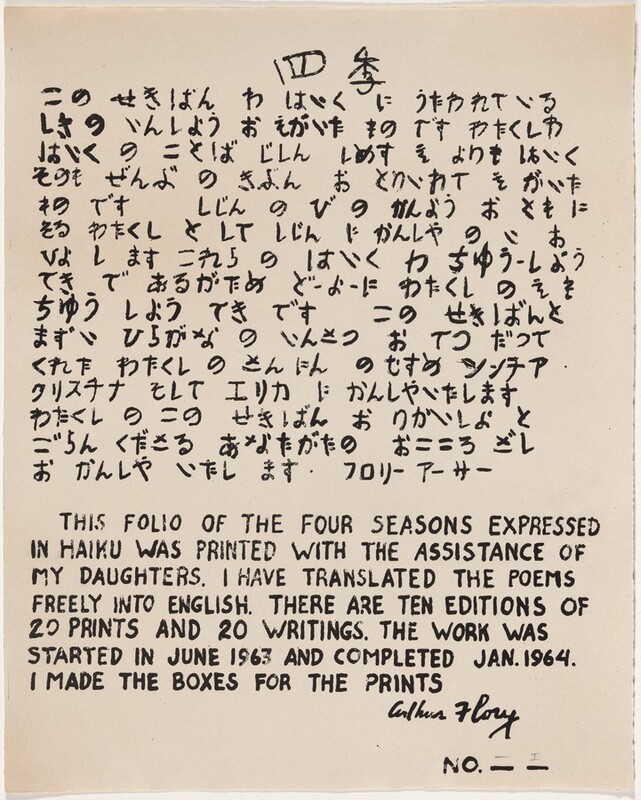 四季
この せきばん わ はいく に うたわれている
しきの いんしよう お えがいた ものです わたくしわ
はいく の ことば じしん しめす え よりも はいく
そのも ぜんぶ の きぶん お とりいれて え がいた
ものです しじん の びの かんよう お ともに
する わたくし として しじん に かんしや の い お
ひよします これら の はいく わ ちゆう-しよう
てき で あるがため どーよーに わたくし の えも
ちゆう しよう てきです この せきばんと
まずい ひらがな の いんさつ お てつ だって
くれた わたくしの さんにん のむすめ シンチア
クリスチナ そして エリカ に かんしやいたします
わたくし の この せきばん お りかいしよ と
ごらん くださる あなたがたの おこころ ざし
お かんしや いたし ます. フロリー アーサー
THIS FOLIO OF THE FOUR SEASONS EXPRESSED
IN HAIKU WAS PRINTED WITH THE ASSISTANCE OF
MY DAUGHTERS. I HAVE TRANSLATED THE POEMS
FREELY INTO ENGLISH. THERE ARE TEN EDITIONS OF
20 PRINTS AND 20 WRITINGS. THE WORK WAS
STARTED IN JUNE 1963 AND COMPLETED JAN. 1964.
I MADE THE BOXES FOR THE PRINTS
Arthur Flory
NO. — I